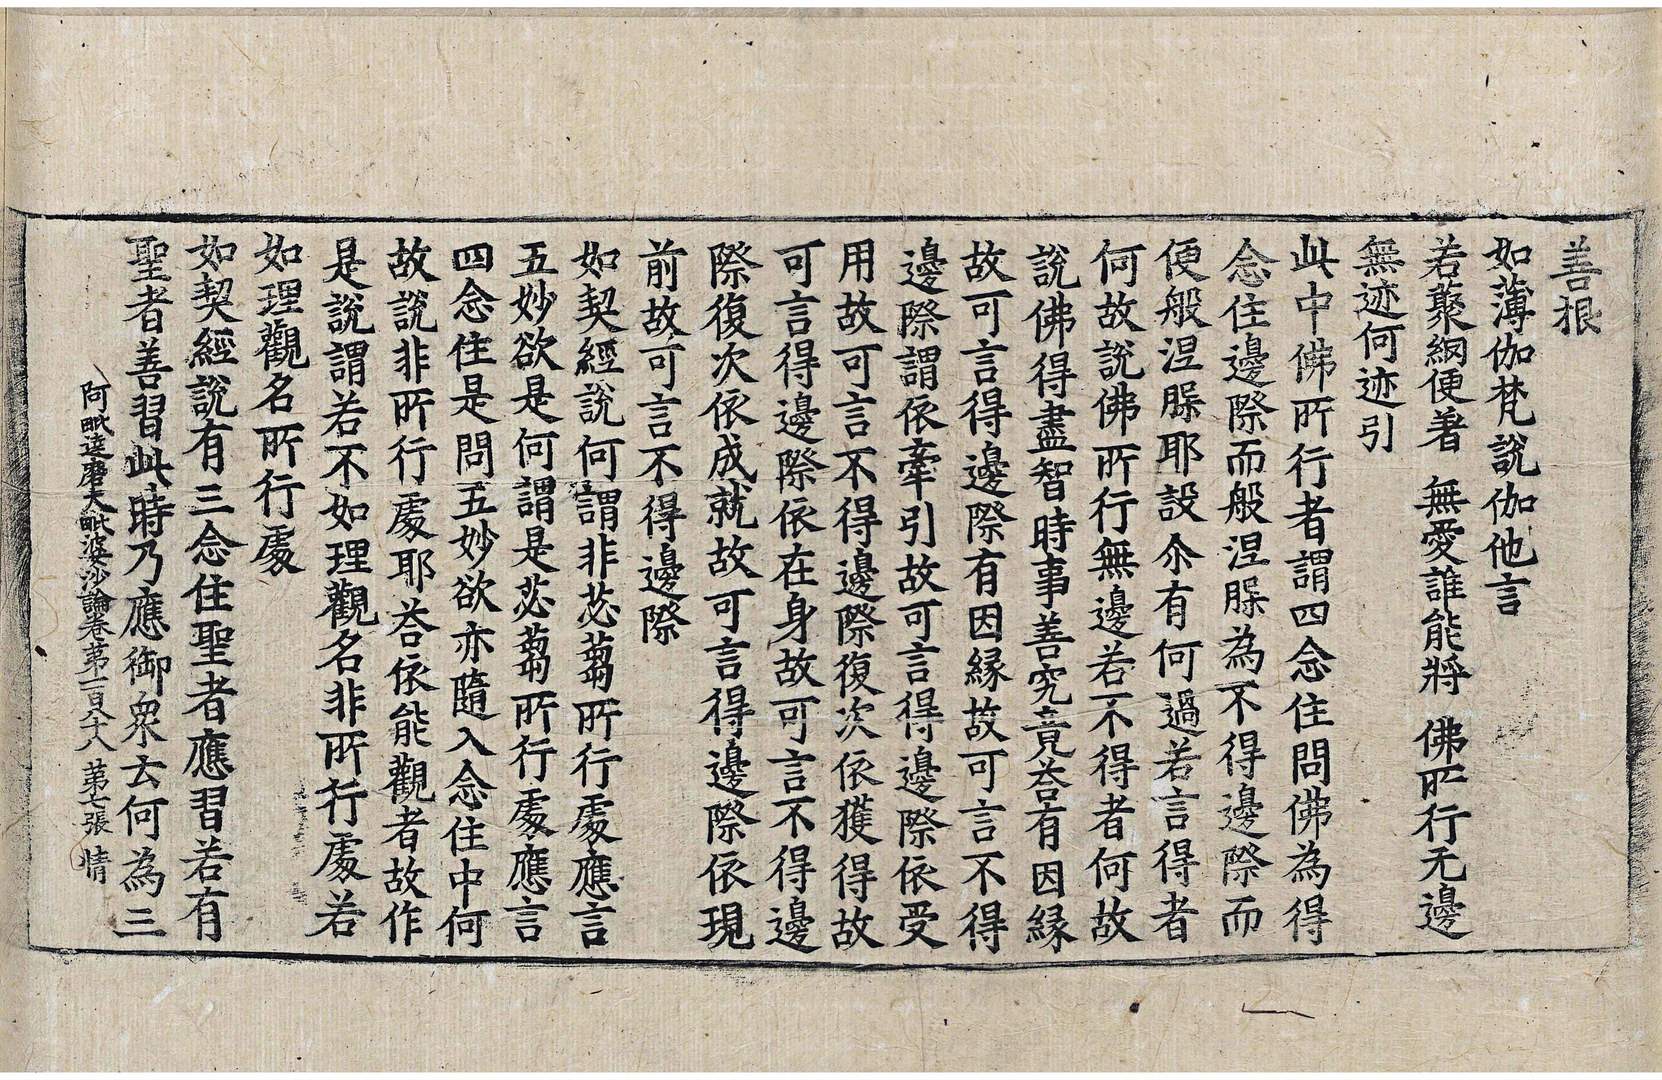 善根
如薄伽梵說伽他言
若蕞網便著 無愛誰能將 佛所行无邊
無迹何迹引
此中佛所行者謂四念住問佛為得
念住邊際而般涅槃為不得邊際而
便般涅槃耶設尒有何過若言得者
何故說佛所行無邊若不得者何故
說佛得盡智時事善究竟荅有因緣
故可言得邊際有因緣故可言不得
邊際謂依牽引故可言得邊際依受
用故可言不得邊際復次依獲得故
可言得邊際依在身故可言不得邊
際復次依成就故可言得邊際依現
前故可言不得邊際
如契經說何謂非苾芻所行處應言
五妙欲是何謂是苾芻所行處應言
四念住是問五妙欲亦隨入念住中何
故說非所行處耶荅依能觀者故作
是說謂若不如理觀名非所行處若
如理觀名所行處
如契經說有三念住聖者應習若有
聖者善習此時乃應御衆云何為三
阿毗達磨大毗婆沙論卷第一百八十八 第七張 情